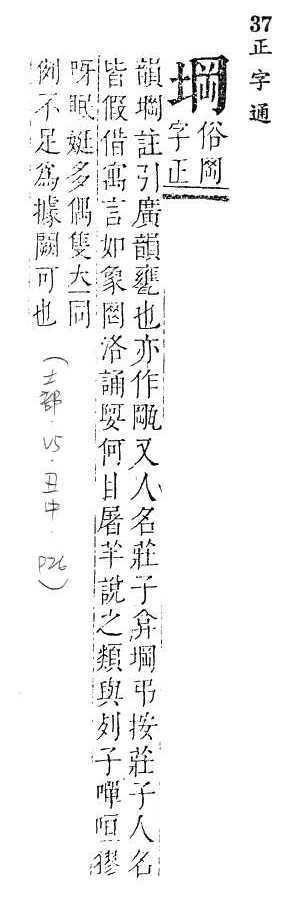 37正字通
堈俗岡字正
韻堈註引廣韻甕也亦作㼚又人名莊子弇堈弔按莊子人名
皆假借寓言如象罔洛誦嬰何甘屠羊說之類與列子嘽咺
呀眠娗多偶隻大同
例不足爲據闕可也
(土部．V5．丑中．P26)